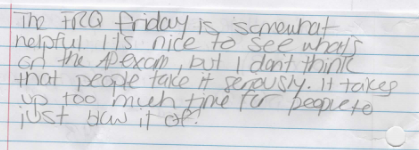 The FRQ friday is somewhat
helpful. It's nice to see what's
on the AP exam, but I dont think
that people take it seriously. It takes
up too much time for people to
just blow it off.